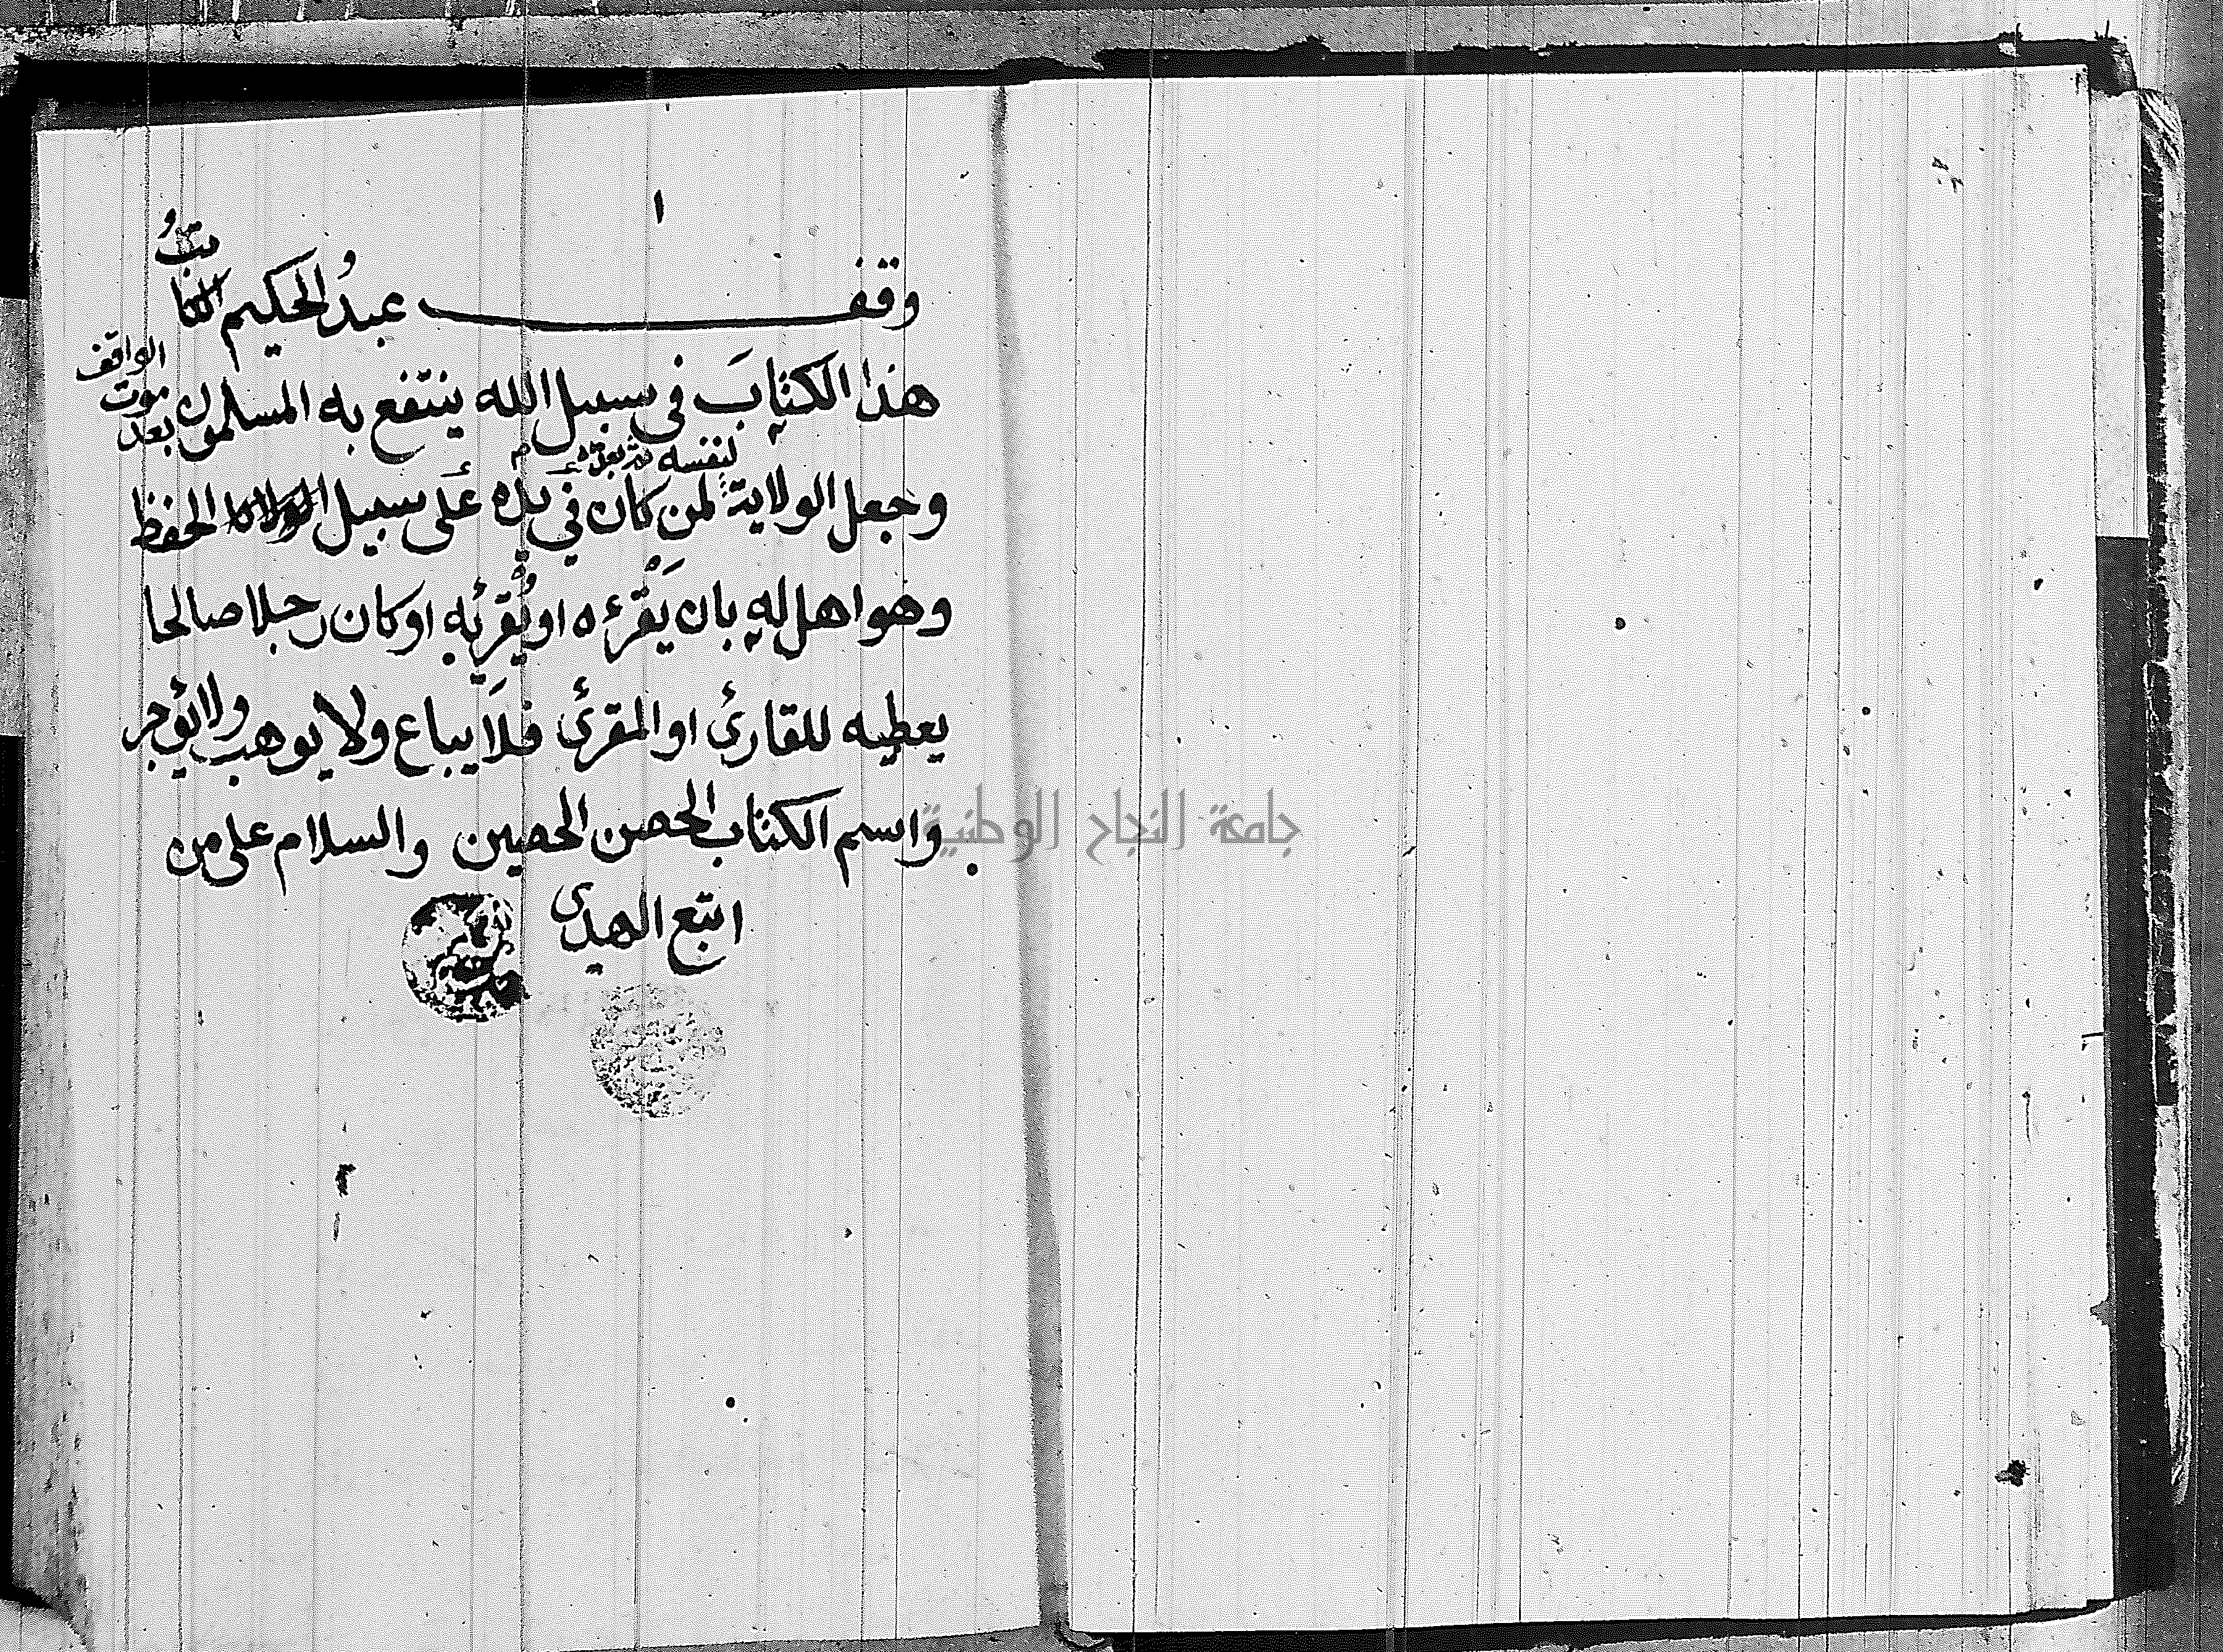 ١
وقف عبدُ الحكيم الكاتبُ
هذا الكتابَ في سبيل الله ينتفع به المسلمون بعد موت الواقف
لنفسه ثم بعده
وجعل الولاية لمن كان في يده على سبيل الحفظ
وهو اهل له بان يَقْرءه او يُقْرِئه او كان رجلا صالحا
يعطيه للقارئ او المقرئ فلَا يباع ولا يوهب ولا يؤجر
واسم الكتاب الحصن الحصين والسلام على من
اتبع الهدى
جامعة النجاح الوطنية